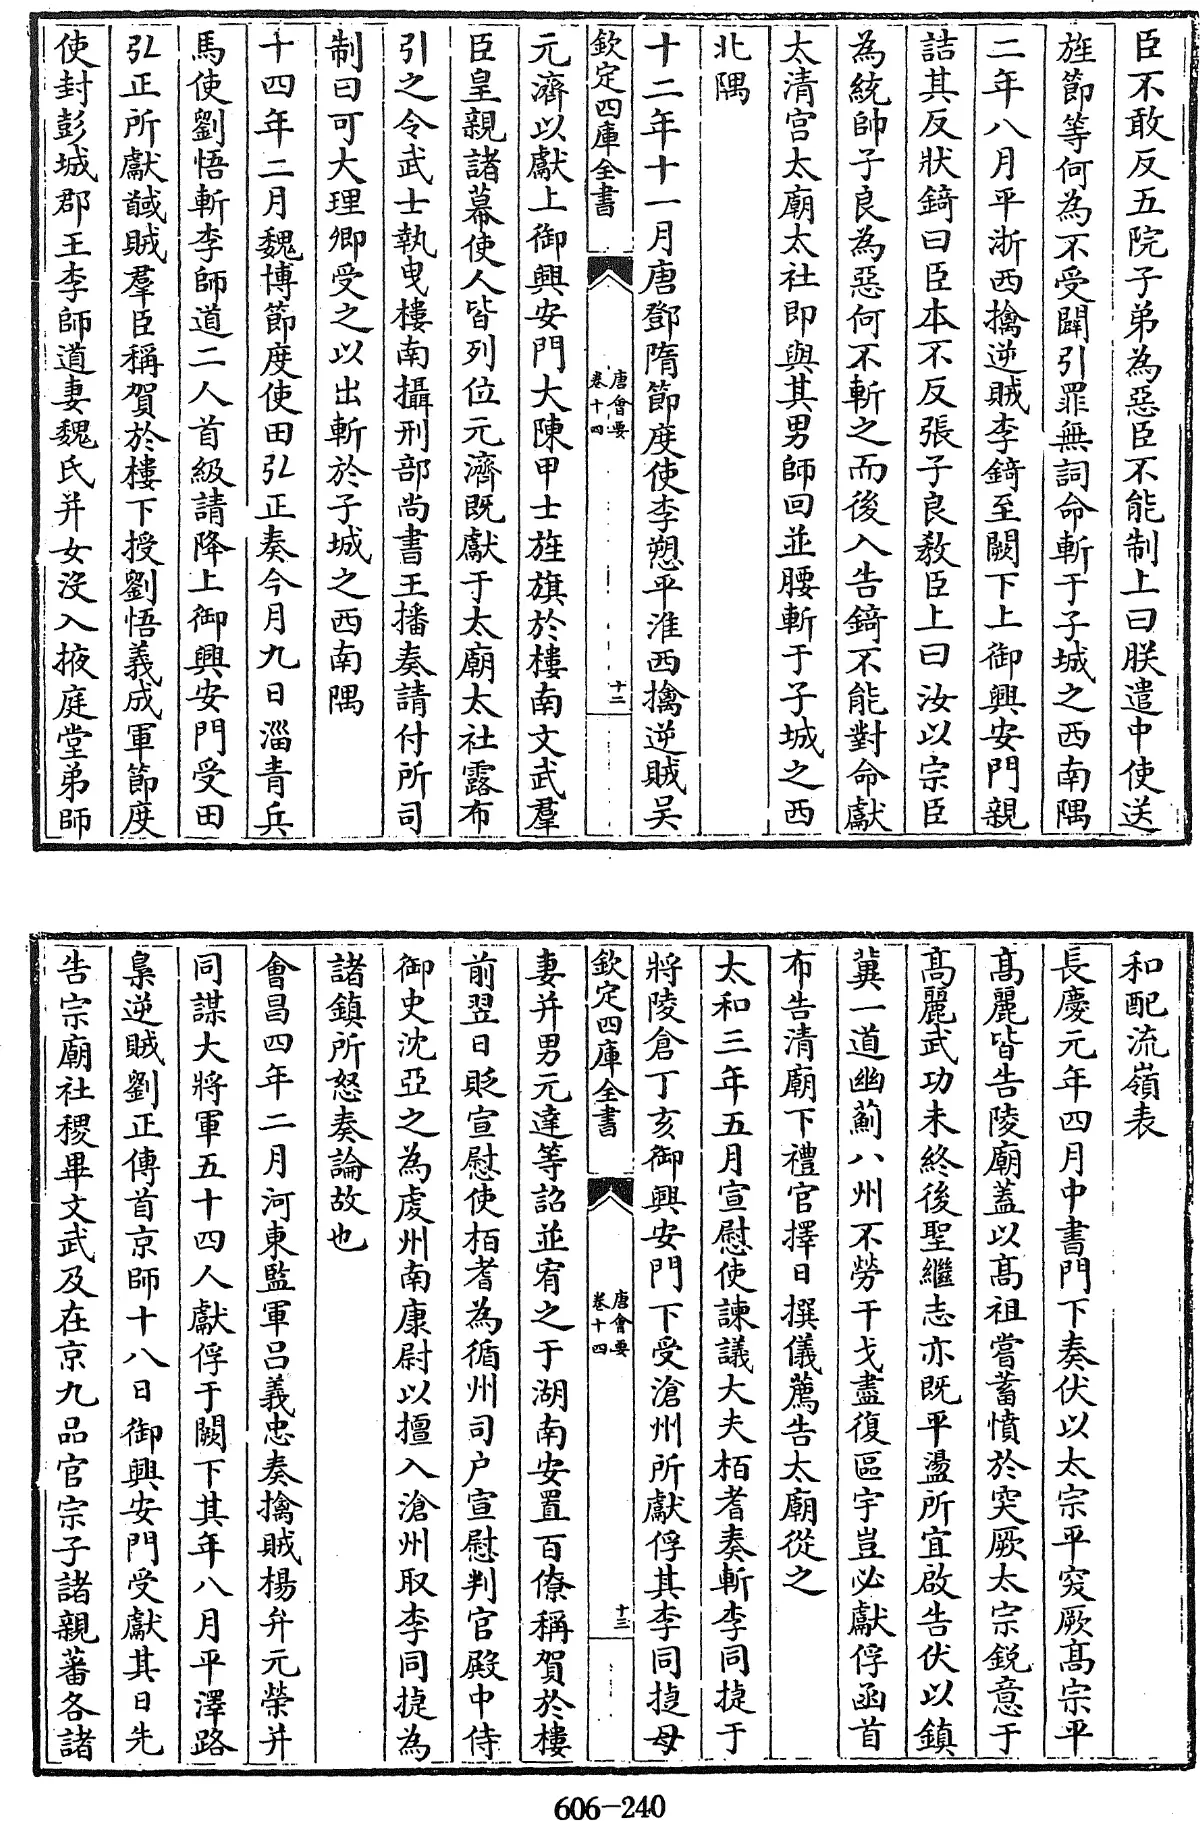 臣不敢反五院子弟為惡臣不能制上曰朕遣中使送
旌節等何為不受闢引罪無詞命斬于子城之西南隅
二年八月平浙西擒逆賊李錡至闕下上御興安門親
詰其反狀錡曰臣本不反張子良教臣上曰汝以宗臣
為統帥子良為惡何不斬之而後入告錡不能對命獻
太清宮太廟太社即與其男師回並腰斬于子城之西
北隅
十二年十一月唐鄧隋節度使李愬平淮西擒逆賊吳
欽定四庫全書
唐會要
卷十四
十二
元濟以獻上御興安門大陳甲士旌旗於樓南文武羣
臣皇親諸幕使人皆列位元濟既獻于太廟太社露布
引之令武士執曳樓南攝刑部尚書王播奏請付所司
制曰可大理卿受之以出斬於子城之西南隅
十四年二月魏博節度使田弘正奏今月九日淄青兵
馬使劉悟斬李師道二人首級請降上御興安門受田
弘正所獻馘賊羣臣稱賀於樓下授劉悟義成軍節度
使封彭城郡王李師道妻魏氏并女沒入掖庭堂弟師
和配流嶺表
長慶元年四月中書門下奏伏以太宗平突厥高宗平
高麗皆告陵廟蓋以高祖嘗蓄憤於突厥太宗銳意于
高麗武功未終後聖繼志亦既平盪所宜啟告伏以鎮
冀一道幽薊八州不勞干戈盡復區宇豈必獻俘函首
布告清廟下禮官擇日撰儀薦告太廟從之
太和三年五月宣慰使諫議大夫栢耆奏斬李同捷于
將陵倉丁亥御興安門下受滄州所獻俘其李同捷母
欽定四庫全書
唐會要
卷十四
十三
妻并男元達等詔並宥之于湖南安置百僚稱賀於樓
前翌日貶宣慰使栢耆為循州司户宣慰判官殿中侍
御史沈亞之為虔州南康尉以擅入滄州取李同捷為
諸鎮所怒奏論故也
會昌四年二月河東監軍吕義忠奏擒賊楊弁元榮并
同謀大將軍五十四人獻俘于闕下其年八月平澤路
梟逆賊劉正傳首京師十八日御興安門受獻其日先
告宗廟社稷畢文武及在京九品官宗子諸親蕃各諸
606-240